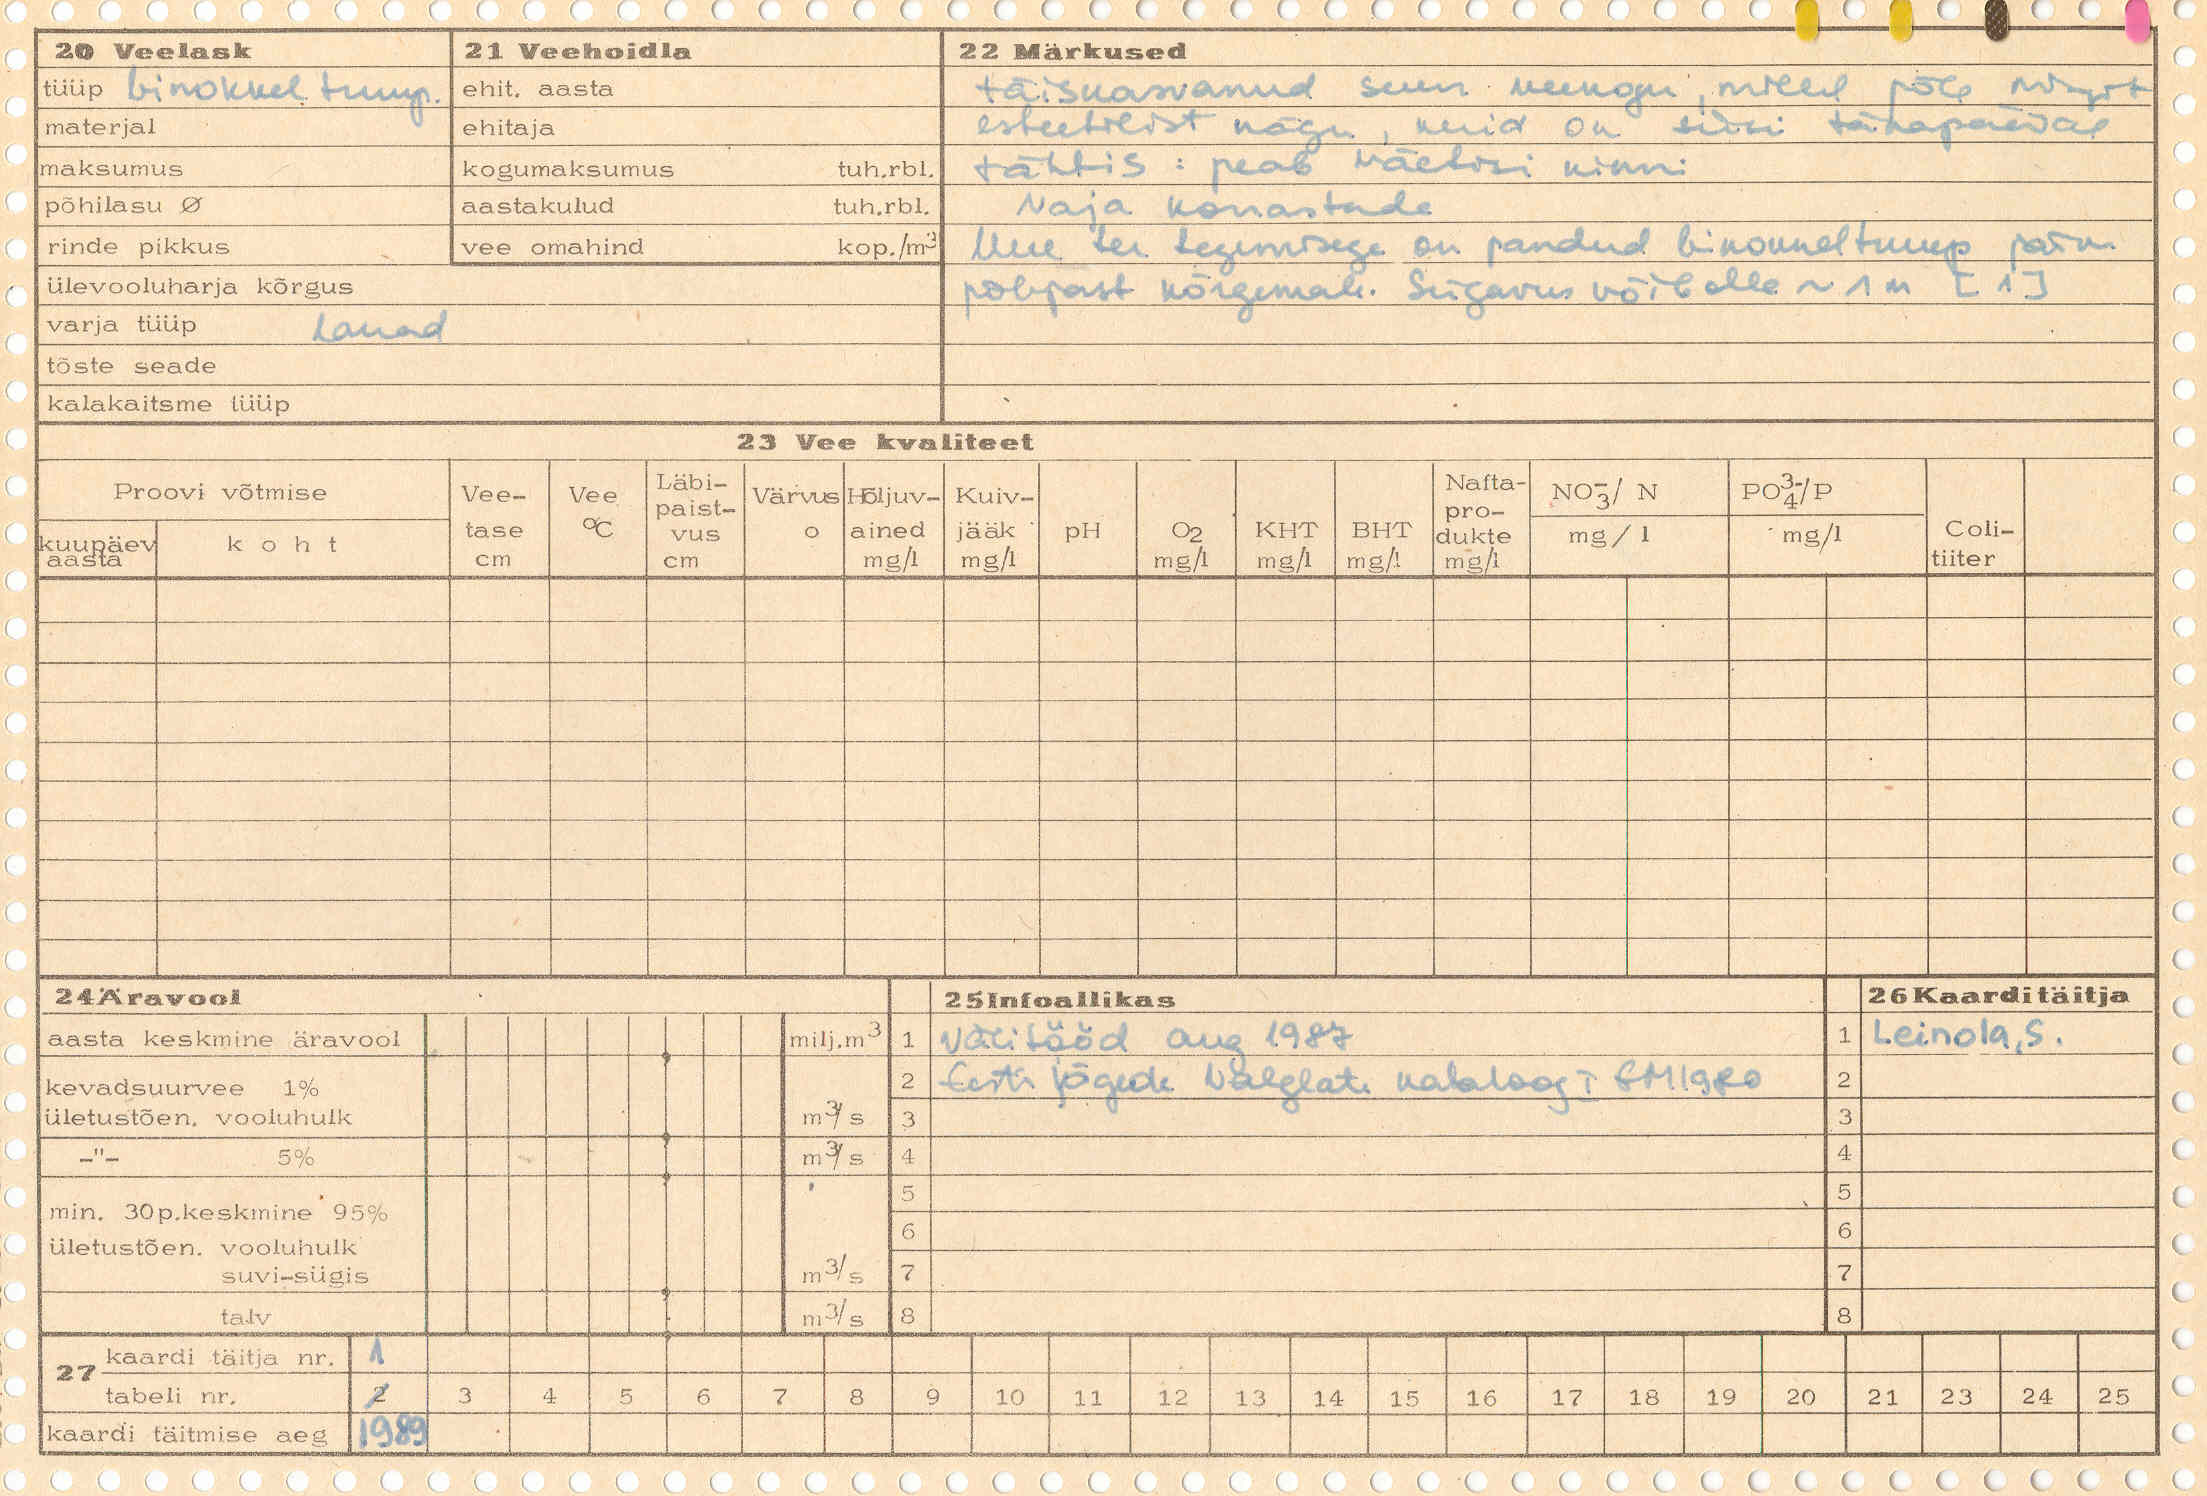 20 Veelask
tüüp binokkel trump.
materjal
maksumus
põhilasu Ø
rinde pikkus
ülevooluharja kõrgus
varja tüüp Lauad
tõste seade
kalakaitsme tüüp
21 Veehoidla
ehit. aasta
ehitaja
kogumaksumus tuh.rbl.
aastakulud tuh.rbl.
vee omahind kop./m³
22 Märkused
täiskasvanud suur veekogu, millel põle mingit
esteetilist nägu, kuid on siiski tänapäeval
tähtis : peab väetisi kinni
Vaja korrastada
Uue tee tegemisega on pandud binokkeltrump päris
põhjast kõrgemale. Sügavus võib olla ~ 1 m [1]
23 Vee kvaliteet
Proovi võtmise
kuupäev aasta
koht
Vee-tase cm
Vee °C
Läbi-paist-vus cm
Värvus o
Hõljuv-ained mg/l
Kuiv-jääk mg/l
pH
O2 mg/l
KHT mg/l
BHT mg/l
Nafta-pro-dukte mg/l
NO3⁻/ N mg/l
PO4³⁻/P mg/l
Coli-tiiter
24 Äravool
aasta keskmine äravool milj.m³
kevadsuurvee 1%
ületustõen. vooluhulk m³/s
-"- 5% m³/s
min. 30p.keskmine 95%
ületustõen. vooluhulk
suvi-sügis m³/s
talv m³/s
25 Infoallikas
1 Välitööd aug 1987
2 Eesti jõgede valglate kataloog I EM 1980
3
4
5
6
7
8
26 Kaarditäitja
1 Leinola, S.
2
3
4
5
6
7
8
27 kaardi täitja nr. 1
tabeli nr. 2 3 4 5 6 7 8 9 10 11 12 13 14 15 16 17 18 19 20 21 23 24 25
kaardi täitmise aeg 1989